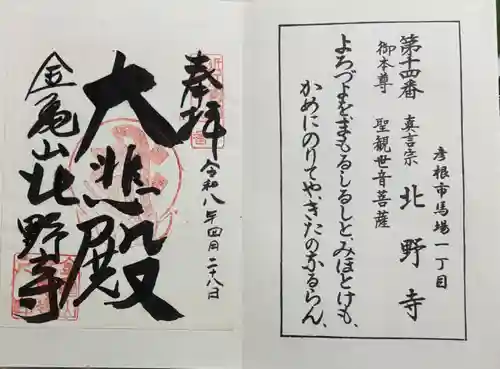 第十四番
真言宗 北野寺
彦根市馬場一丁目
御本尊 聖観世音菩薩
よろづよをまもるしるしと、みほとけも、
かめにのりてや、きたのなるらん、
奉拝
令和八年四月二十八日
大悲殿
金亀山北野寺